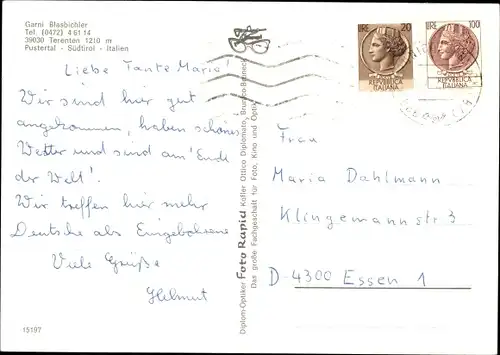 Garni Blasbichler
Tel. (0472) 4 61 14
39030 Terenten 1210 m
Pustertal - Südtirol - Italien
Liebe Tante Maria!
Wir sind hier gut
angekommen, haben schönes
Wetter und sind am "Ende
der Welt".
Wir treffen hier mehr
Deutsche als Eingeborene
Viele Grüße
Helmut
15197
Diplom-Optiker Foto Rapid Kofler Ottico Diplomato, Brunico-Bruneck
Das große Fachgeschäft für Foto, Kino und Optik
LIRE 20
REPVBBLICA
ITALIANA
LIRE 100
REPVBBLICA
ITALIANA
Frau
Maria Dahlmann
Klingemannstr 3
D-4300 Essen 1